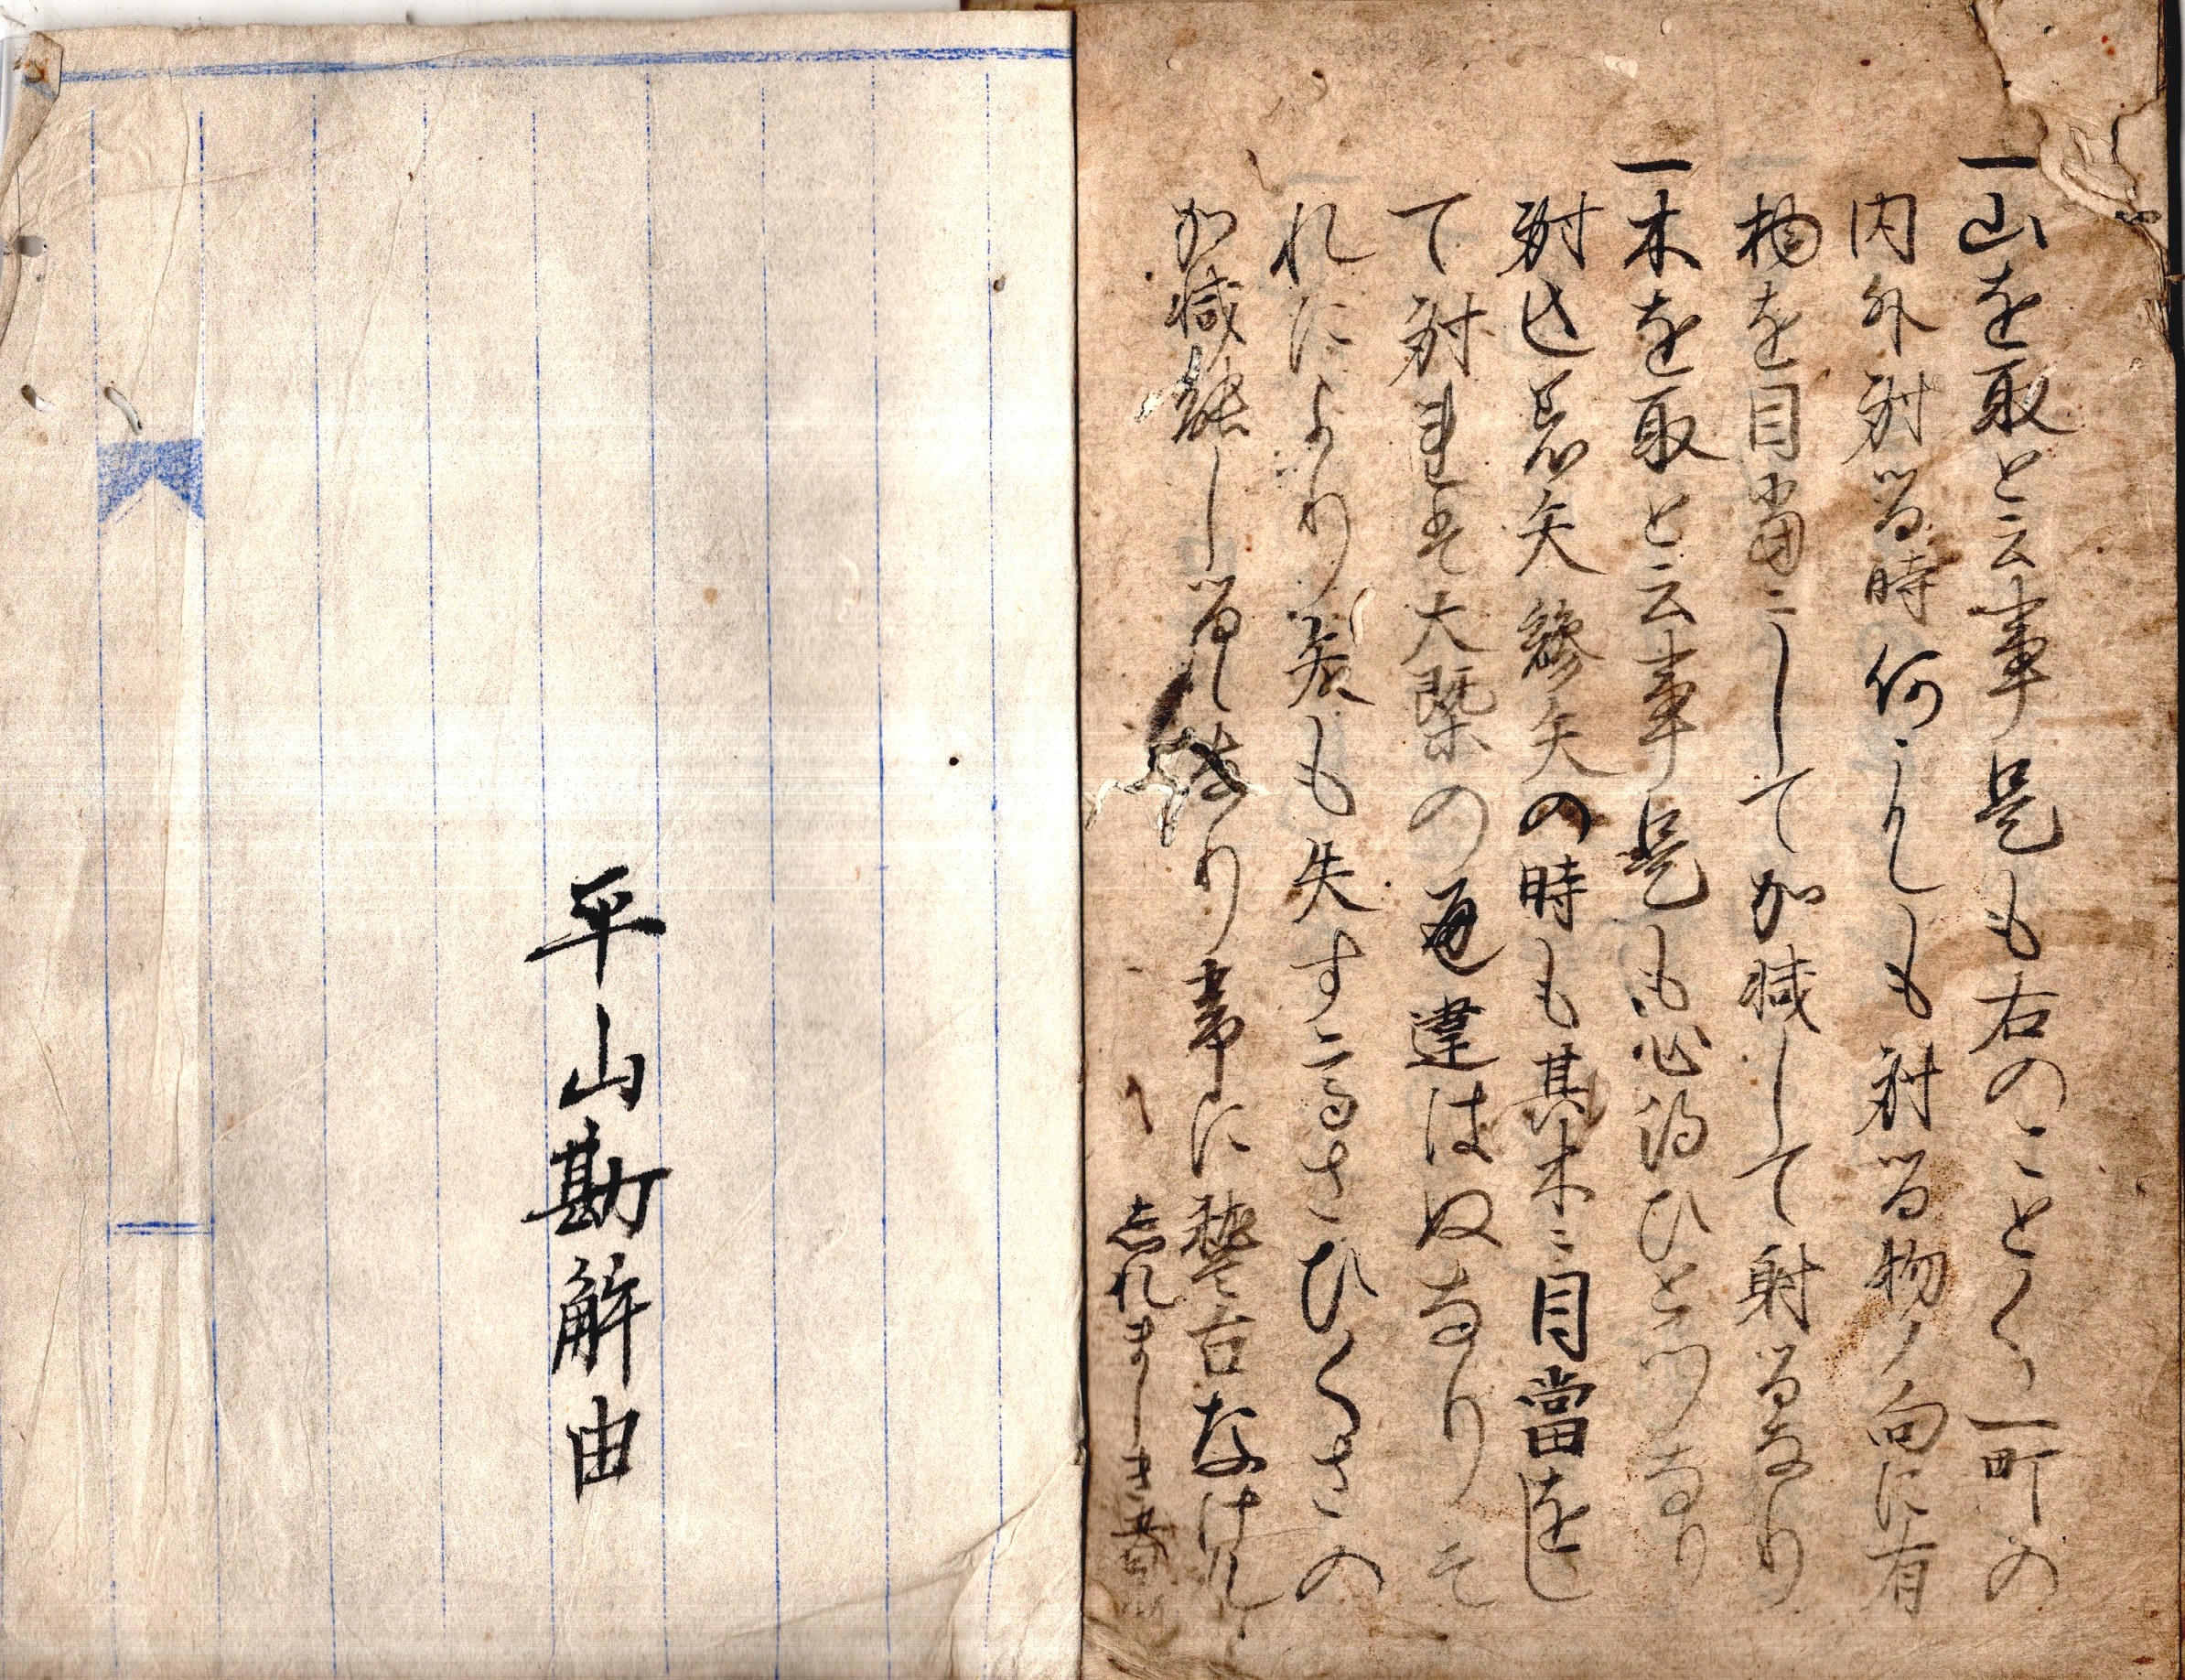 一山を取と云事是も右のことく一町の
内外射る時何にても射る物ノ向に有
物を目当ニして加減して射るなり
一木を取と云事是も心得ひとつなり
射込忘矢繰矢の時も其木ニ目當をし
て射れは大概の通違はぬなりそ
れにより矢も失すたるさひくさの
加減能し なり常に稽古なけれは
しれましき
平山勘解由